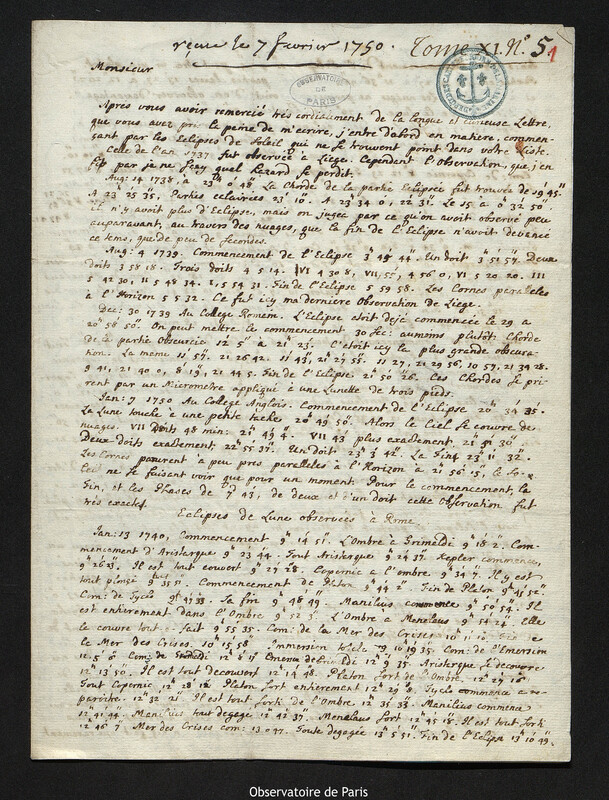 reçue le 7 fevrier 1750. Tome XI. N.° 5.
1
Monsieur
OBSERVATOIRE DE PARIS
Apres vous avoir remercié très cordialement de la longue et curieuse Lettre,
que vous avez pris la peine de m'ecrire, j'entre d'abord en matiere, commen-
sant par les Eclipses de Soleil qui ne se trouvent point dans votre Liste.
Celle de l'an 1737 fut observée à Liege. Cependant l'Observation, que j'en
fis par je ne sçay quel hazard se perdit.
Aug: 14 1738, a 23 0 48. La Chorde de la partie Eclipsée fut trouvée de 19 45
A 23 25 35, Parties eclairées 23 10. A 23 34 0, 22 31. Le 15 a 0 32 50
il n'y avoit plus d'Eclipse, mais on jugea par ce qu'on avoit observé peu
auparavant, au travers des nuages, que la fin de l'Eclipse n'avoit devancé
ce tems, que de peu de secondes.
Aug: 4 1739. Commencement de l'Eclipse 3 49 44. Un doit 3 51 57. Deux
doits 3 58 18. Trois doits 4 5 14. VI 4 30 8, VII, 4 56 0, VI 5 20 20. III
5 42 30, II 5 48 34, I, 5 54 31. Fin de l'Eclipse 5 59 58. Les Cornes paralleles
à l'Horizon 5 5 32. Ce fut icy ma derniere Observation de Liege.
Dec: 30 1739 Au College Romain. L'Eclipse etoit dejà commencée le 29 a
20 58 50. On peut mettre le commencement 30 sec: aumoins plutôt. Chorde
de la partie Obscurcie 12 5 à 21 23. C'etoit icy la plus grande obscura-
tion. La meme 11 57, 21 26 42. 11 43, 21 27 55. 11 27, 21 29 56, 10 57, 21 34 28.
9 41, 21 40 0, 8 19, 21 44 5. Fin de l'Eclipse 21 50 26. Ces Chordes se pri-
rent par un Micrometre appliqué à une Lunette de trois pieds.
Jan: 7 1750 Au College Anglois. Commencement de l'Eclipse 20 34 35.
La Lune touche à une petite tache 20 49 50. Alors le Ciel se couvre de
nuages. VII Doits 48 min: 21 49 4. VII 43 plus exactement, 21 51 30
Deux doits exactement, 22 55 37. Un doit 23 3 42. La Fin 23 11 32.
Les Cornes parurent à peu près paralleles à l'Horizon a 21 56 15, le So-
leil ne se faisant voir que pour un moment. Pour le commencement, la
Fin, et les Phases de 7 43, de deux et d'un doit cette Observation fut
très exacte.
Eclipses de Lune observées à Rome
Jan: 13 1740, Commencement 9 14 51. L'Ombre a Grimaldi 9 18 2. Com-
mencement d'Aristarque 9 23 44. Tout Aristarque 9 24 37. Kepler commence,
9 26 23. Il est tout couvert 9 27 28. Copernic a l'ombre 9 34 7. Il y est
tout plongé 9 35 5. Commencement de Platon 9 44 2. Fin de Platon 9 45 52.
Com: de Tycho 9 47 33. Sa fin 9 48 49. Manilius commence 9 50 54. Il
est entierement dans l'Ombre 9 52 5. L'Ombre a Menelaus 9 54 22. Elle
le couvre tout a fait 9 55 35. Com: de la Mer des Crises 10 11 10. Fin de
la Mer des Crises. 10 15 58. Immersion totale 10 19 35. Com: de l'Emersion
12 5 0. Com: de Grimaldi 12 8 17. 12 9 35. Aristarque se decouvre
12 13 50. Il est tout decouvert 12 14 48. Platon sort de l'Ombre. 12 27 16
Tout Copernic 12 28 12. Platon sort entierement 12 29 8. Tycho commence a pa-
roitre. 12 32 2. Il est tout sorti de l'Ombre 12 35 33. Manilius commence
12 41 44. Manilius tout degagé 12 42 37. Menelaus sort 12 45 18. Il est tout sorti
12 46 7. Mer des Crises com: 13 0 47. Toute degagée 13 5 51. Fin de l'Eclipse 13 10 49.
Observatoire de Paris